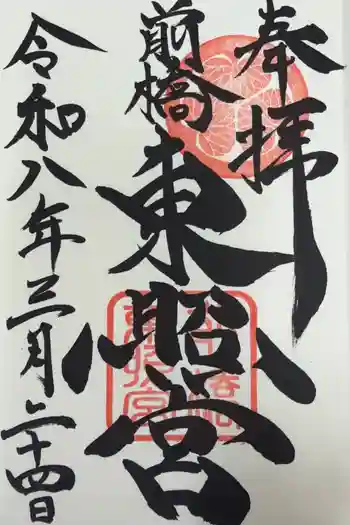 奉拝
前橋
東照宮
令和八年三月二十四日